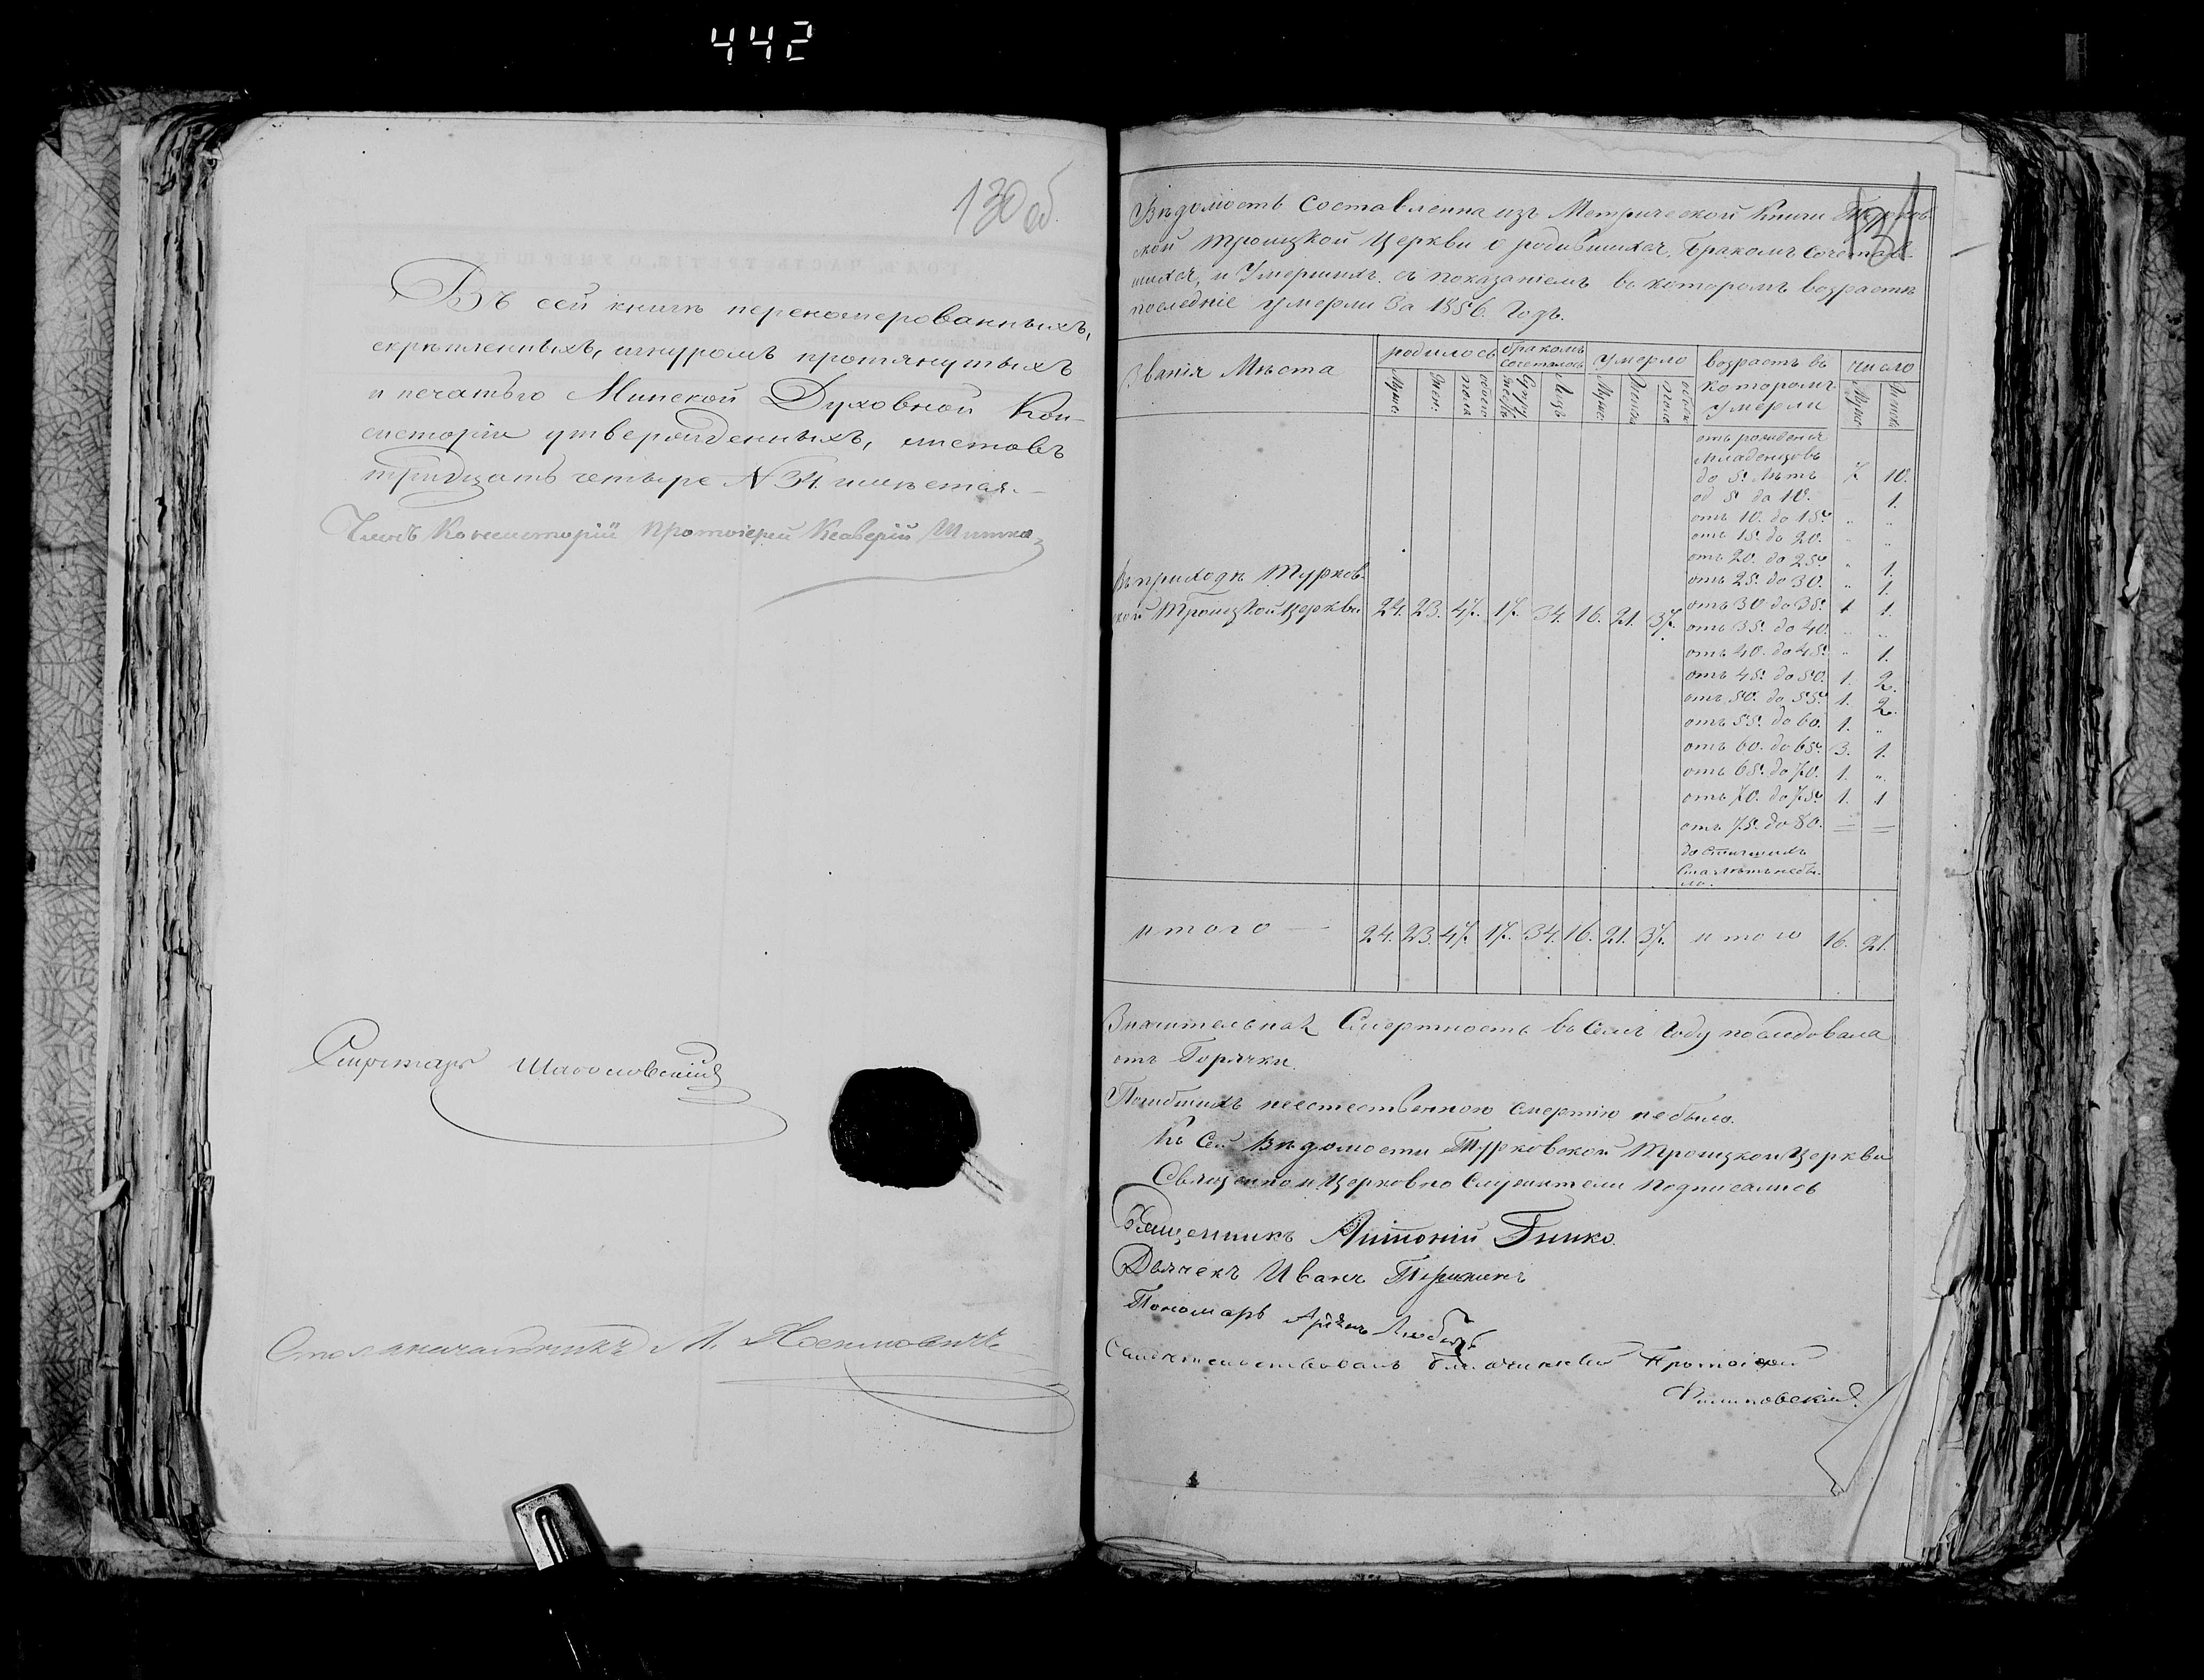 442
130 об.
Въ сей книгѣ переномерованныхъ,
скрѣпленныхъ, шнуромъ протянутыхъ
и печатью Минской Духовной Кон-
систоріи утвержденныхъ, листовъ
тридцать четыре N 34. имѣется.
Членъ Консисторіи Протоіерей Ксаверій
Секретарь
Столоначальникъ М.
131
Вѣдомость Составленна изъ Метрической Книги Турков-
ской Троицкой Церкви о родившихся, бракомъ сочетав-
шихся, и Умершихъ съ показаніемъ въ которомъ возрастѣ
послѣдніе умерли За 1856. Годъ.
Званія Мѣста
родилось
бракомъ сочеталось
умерло
возрастъ въ которомъ умерли
число
Муж: Жен: обоего пола Супружествъ Лицъ Муж: Женск обоего пола Муж: Женск
отъ рожденія
Младенцовъ
до 5. лѣтъ 7. 10.
од 5 до 10. 1.
отъ 10. до 15. " "
отъ 15. до 20. " "
отъ 20. до 25. " 1.
отъ 25. до 30. " 1.
Въ приходѣ Турков-
ской Троицкой Церкви 24. 23. 47. 17. 34. 16. 21. 37.
отъ 30 до 35. 1 1.
отъ 35. до 40. " "
отъ 40. до 45. " 1.
отъ 45. до 50. 1. 2.
отъ 50. до 55. 1. 2.
отъ 55. до 60. 1. "
отъ 60. до 65. 3. 1.
отъ 65. до 70. 1. "
отъ 70. до 75. 1. 1
отъ 75. до 80. = =
достигшихъ
Ста лѣтъ небы-
ло.
итого — 24. 23. 47. 17. 34. 16. 21. 37. итого 16. 21.
Значительная Смертность въ Семъ Году послѣдовала
отъ Горячки.
Погибшихъ неестественною Смертію небыло.
Къ Сей Вѣдомости Турковской Троицкой Церкви
Священно и Церковно Служители подписались
Священникъ Антоній Гинко.
Дьячекъ Иванъ
Пономарь
Свидѣтельствовалъ Благочинный Протоіерей